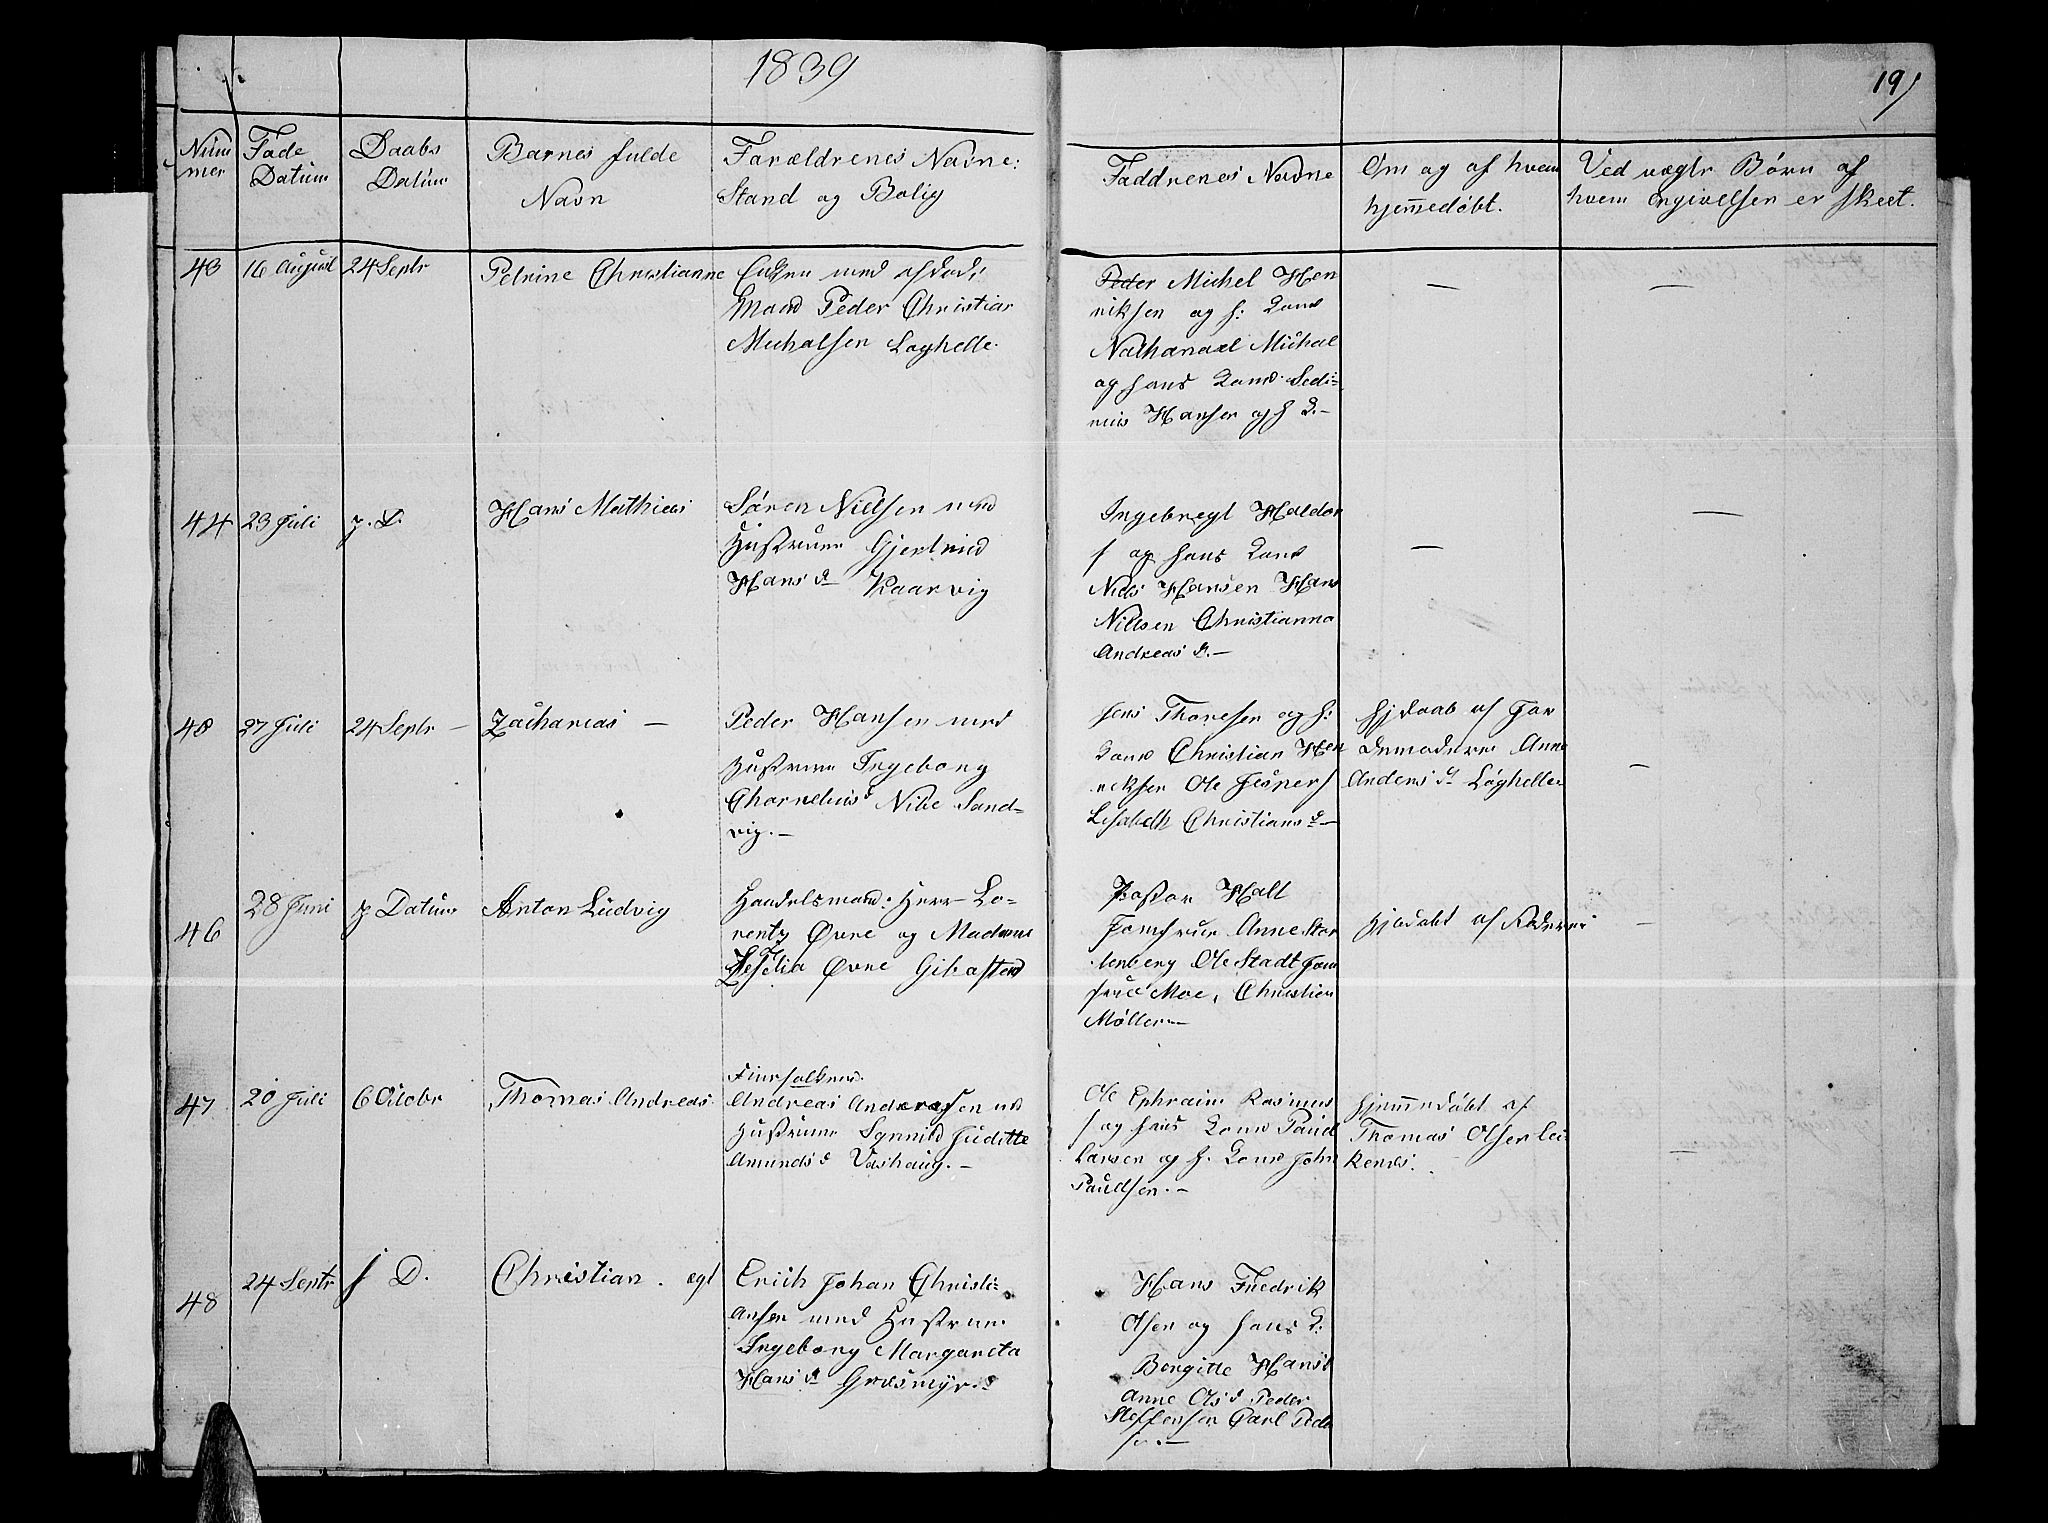 1839
19
Num
mer
Føde
Datum
Daabs
Datum
Barnes fulde
Navn
Forældrenes Navne:
Stand og Bolig
Faddrenes Navne
Om og af hvem
hjemedøbt.
Ved uægte Børn af
hvem Angivelsen er skeet.
43
16 August
24 Septr
Petrine Christianne
Enken med afdøde
Mand Peder Christian
Michalsen Løghelle.
Peder Michel Hen
riksen og h: Kone
Nathanael Michael
og hans Kone Sedi-
nius Hansen og h K.-
44
23 Juli
p. D.
Hans Mathias
Søren Nielsen med
Hustrue Gjertrud
Hans d Kaarvig
Ingebregt Haldor
s og hans Kone
Niels Hansen Hans
Nilsen Christianna
Andreas d.-
27 Juli
24 Septr -
Zacharias -
Peder Hansen med
Hustrue Ingeborg
Chornelius d Sand-
vig.-
Jens Thoresen og h:
Kone Christian Hen
riksen Ole Jespers
Lisabeth Christians d-
Hjdaab af Jor
demoderen Anne
Anders d Løghelle
46
28 Juni
p Datum
Anton Ludvig
Handelsmand: Herr Lo-
rentz Øvre og Madame
Øvre Gibostad
Pastor Holt
Jomfrue Anne Stor
tenberg Ole Stadt Jom
frue Moe, Christian
Møller-
Hjedøbt af
47
20 Juli
6 Octobr
Thomas Andreas
Finnfolkene
Andreas Andersen med
Hustrue Synnild Juditte
Amunds d Vashaug.-
Ole Ephraim Rasmus
s og hans Kone Paul
Larsen og h. Kone John
Paulsen.-
Hjemmedøbt af
Thomas Olsen Lei
kenes.
48
24 Septr
f D.
Christian. ægt
Erich Johan Christi-
ansen med Hustrue
Ingeborg Margareta
Hans d Græsmyr
Hans Fredrik
Olsen og hans K:
Bergitte Hans d
Anne Ols d Peder
Steffensen Carl Peder
s.-